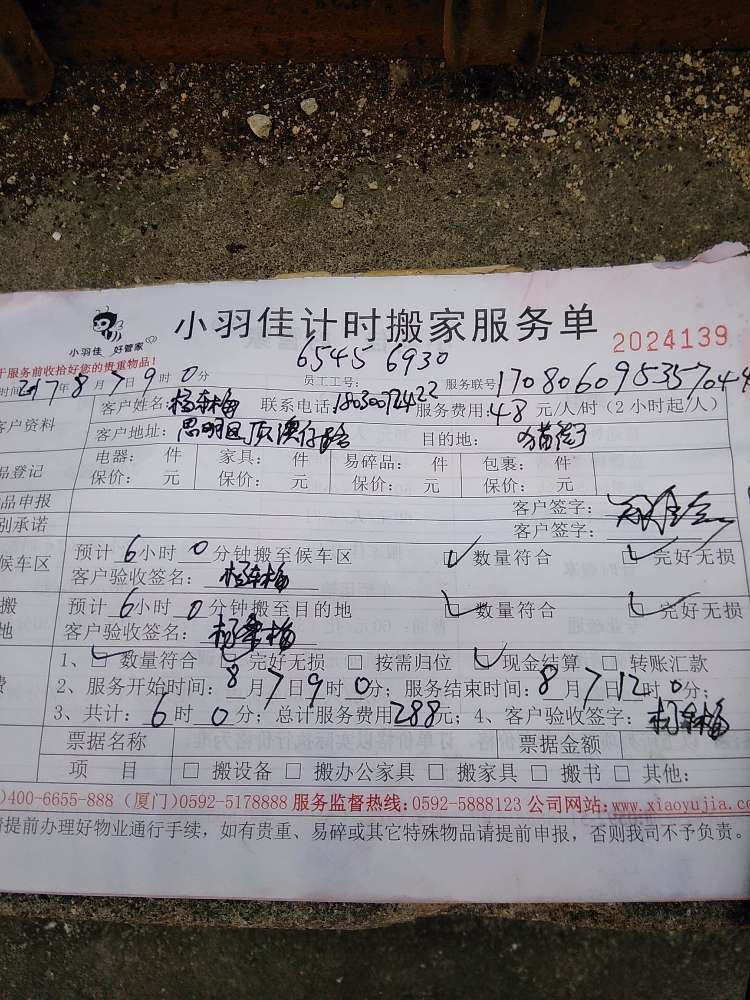 小羽佳 好管家
小羽佳计时搬家服务单
2024139
于服务前收拾好您的贵重物品!
6545 6930
时间:2017年8月7日9时0分 员工工号: 服务联号 170806095357044
客户资料
客户姓名: 联系电话: 服务费用:48元/人/时(2小时起/人)
客户地址:思明区顶澳仔 目的地:
品登记
电器: 件 家具: 件 易碎品: 件 包裹: 件
保价: 元 保价: 元 保价: 元 保价: 元
品申报 客户签字:
别承诺 客户签字:
候车区
预计6小时0分钟搬至候车区 数量符合 完好无损
客户验收签名:
搬
预计6小时0分钟搬至目的地 数量符合 完好无损
地
客户验收签名:
1、数量符合 完好无损 按需归位 现金结算 转账汇款
费
2、服务开始时间:8月7日9时0分;服务结束时间:8月7日12时0分;
3、共计:6时0分;总计服务费用288元;4、客户验收签字:
票据名称 票据金额
项 目 搬设备 搬办公家具 搬家具 搬书 其他:
)400-6655-888 (厦门)0592-5178888 服务监督热线:0592-5888123 公司网站:www.xiaoyujia.com
请提前办理好物业通行手续,如有贵重、易碎或其它特殊物品请提前申报,否则我司不予负责。